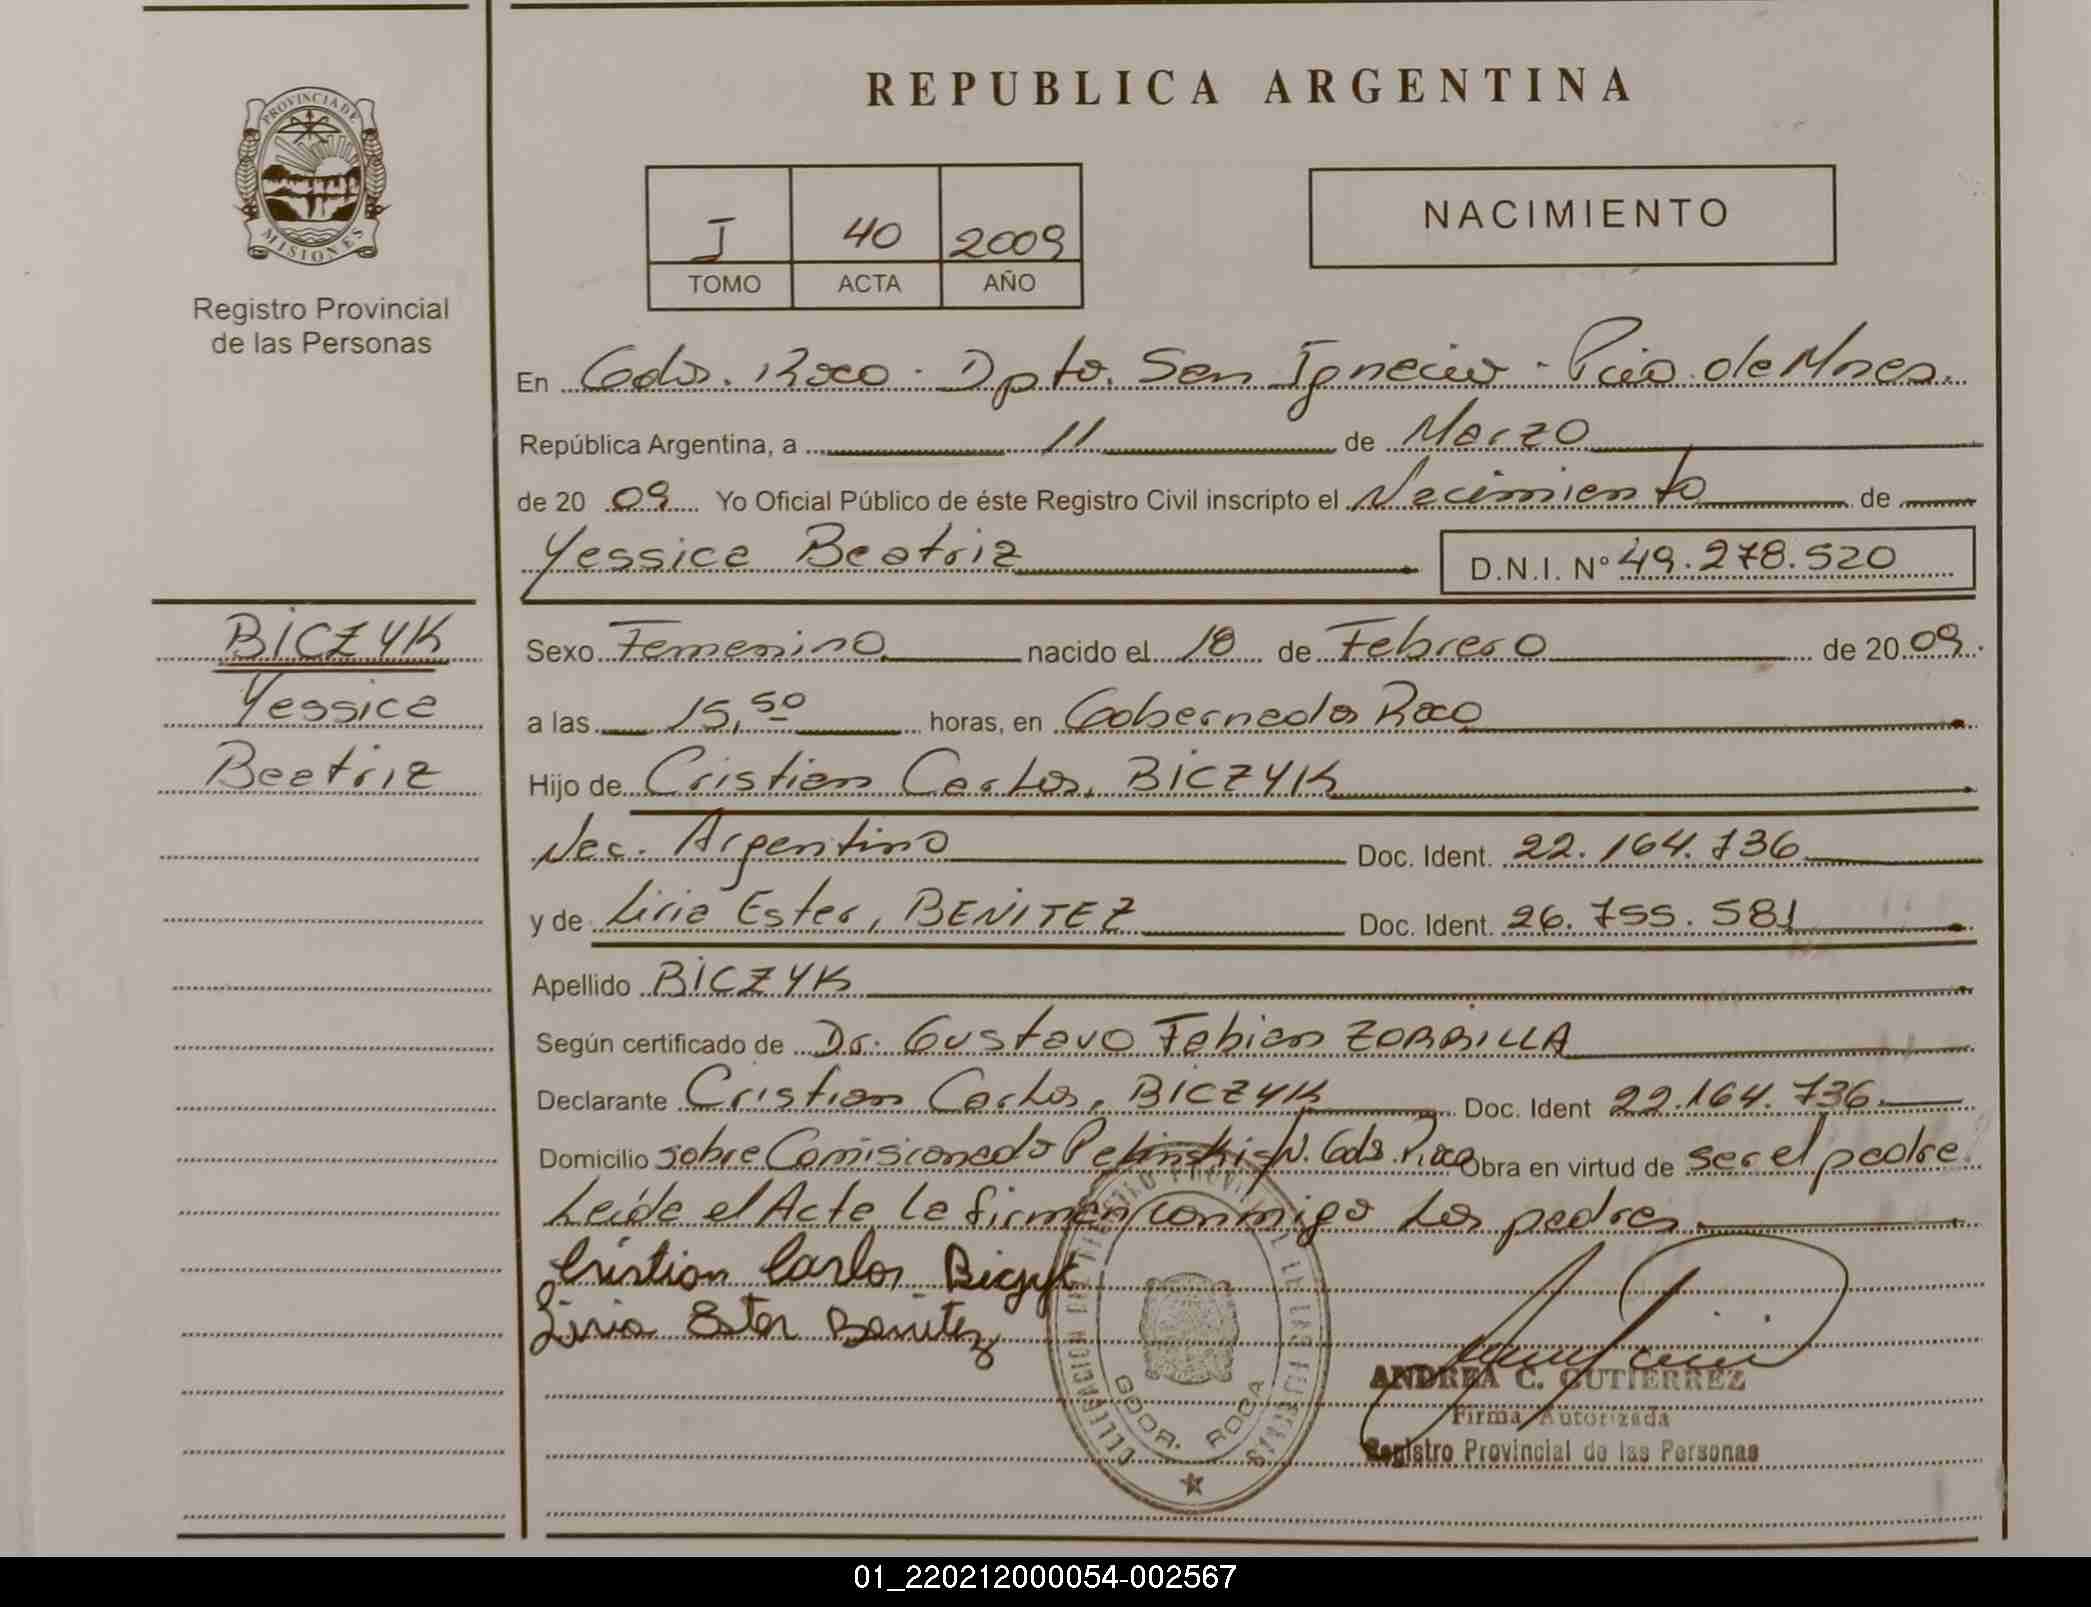 REPUBLICA ARGENTINA
PROVINCIA DE
MISIONES
Registro Provincial
de las Personas
I 40 2009
TOMO ACTA AÑO
NACIMIENTO
En Gdor. Roca - Dpto. San Ignacio - Pcia de Mnes.
República Argentina, a 11 de Marzo
de 20 09 Yo Oficial Público de éste Registro Civil inscripto el Nacimiento de
Yessica Beatriz D.N.I. Nº 49.278.520
BICZYK
Yessica
Beatriz
Sexo Femenino nacido el 18 de Febrero de 20 09
a las 15,50 horas, en Gobernador Roca
Hijo de Cristian Carlos, BICZYK
Nac. Argentino Doc. Ident. 22.164.736
y de Liria Ester, BENITEZ Doc. Ident. 26.755.581
Apellido BICZYK
Según certificado de Dr. Gustavo Fabian ZORRILLA
Declarante Cristian Carlos, BICZYK Doc. Ident 22.164.736
Domicilio sobre Comisionado S/N. Gdor. Roca Obra en virtud de ser el padre
Leída el Acta la firman conmigo los padres.
Cristian Carlos Biczyk
Liria Ester Benitez
GDOR. ROCA
ANDREA C. GUTIERREZ
Firma Autorizada
Registro Provincial de las Personas
01_220212000054-002567